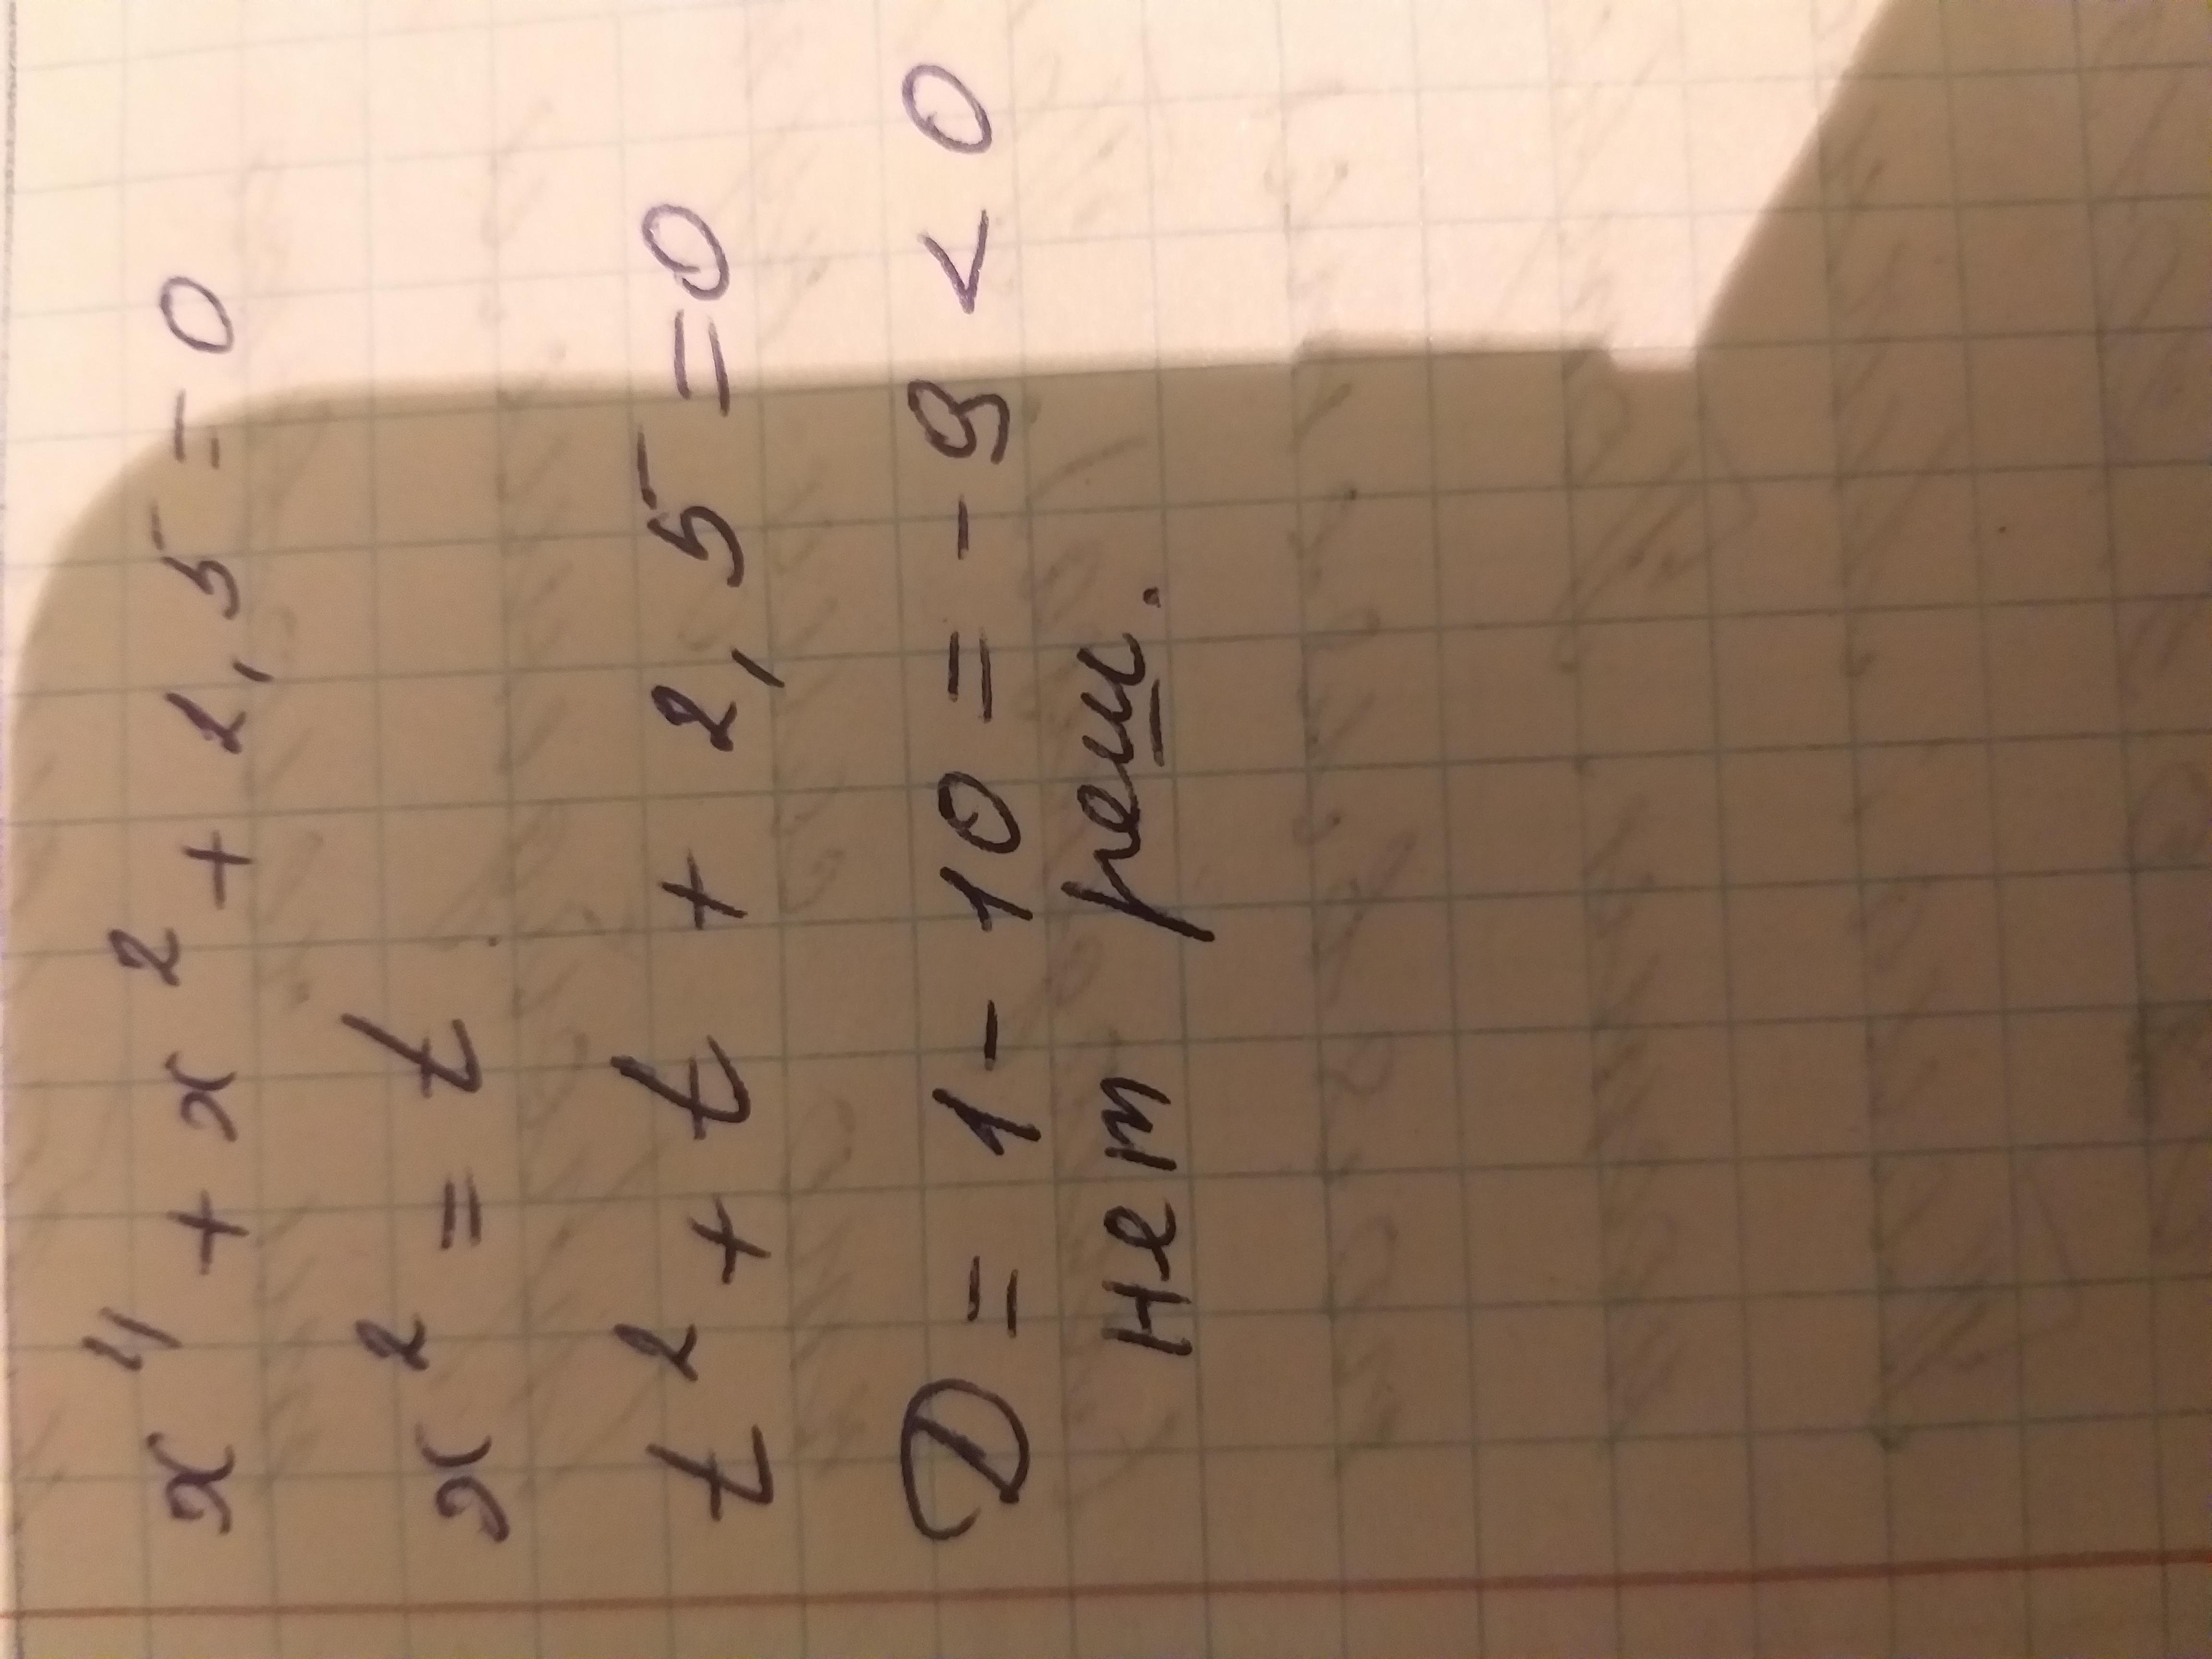 x⁴ + x² + 2,5 = 0
x² = t
t² + t + 2,5 = 0
D = 1 - 10 = - 9 < 0
нет реш.